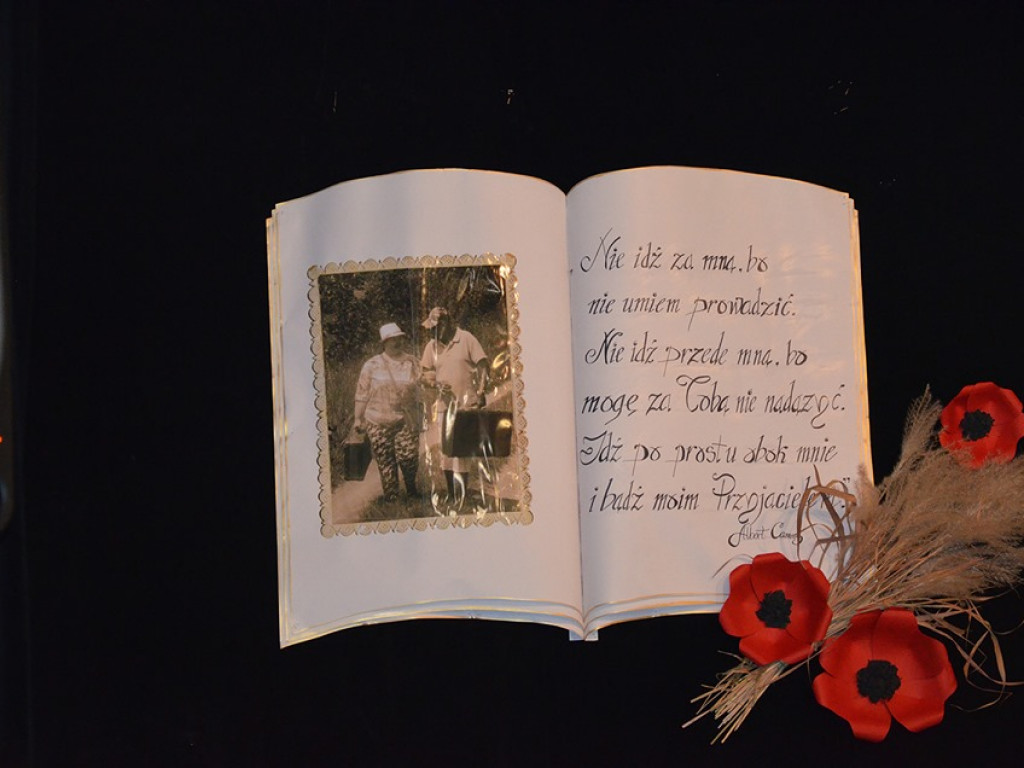 „Nie idź za mną, bo
nie umiem prowadzić.
Nie idź przede mną, bo
mogę za Tobą nie nadążyć.
Idź po prostu obok mnie
i bądź moim Przyjacielem."
Albert Camus